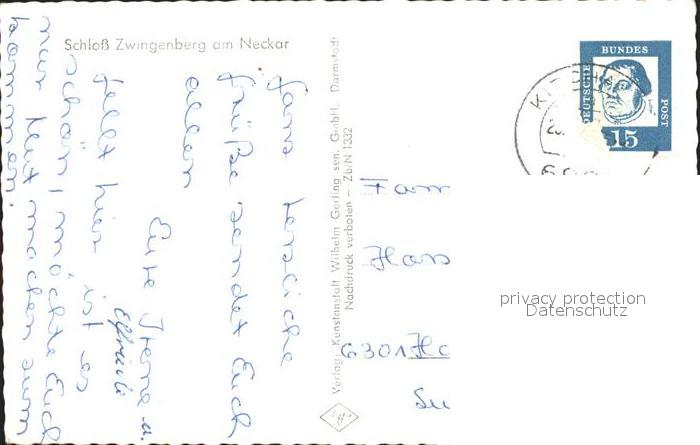 Schloß Zwingenberg am Neckar
Ganz herzliche
Grüße sendet Euch
allen
Eure Irene u.
Elfriede
fellt hier ist es
schön, möchte Euch
nur Mut machen zum
kommen.
Verlag: Kunstanstalt Wilhelm Gerling sen. GmbH., Darmstadt
Nachdruck verboten – Zb/N 1332
DEUTSCHE
BUNDES
POST
15
Fam
Hans
6301 
privacy protection
Datenschutz